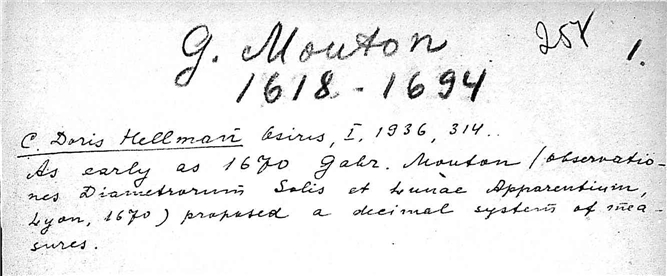 G. Mouton 258 1.
1618 - 1694
C. Doris Hellman Osiris, I, 1936, 314.
As early as 1670 Gabr. Mouton (Observatio-
nes Diametrorum Solis et Lunae Apparentium,
Lyon, 1670) proposed a decimal system of mea-
sures.